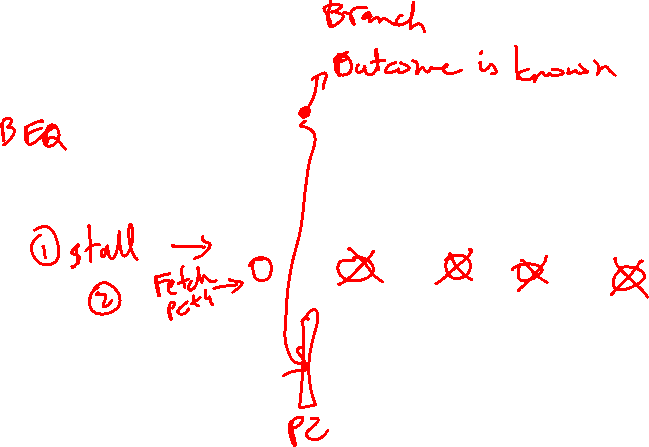 Branch
Outcome is known
BEQ
① stall
② Fetch
PC+4
PC